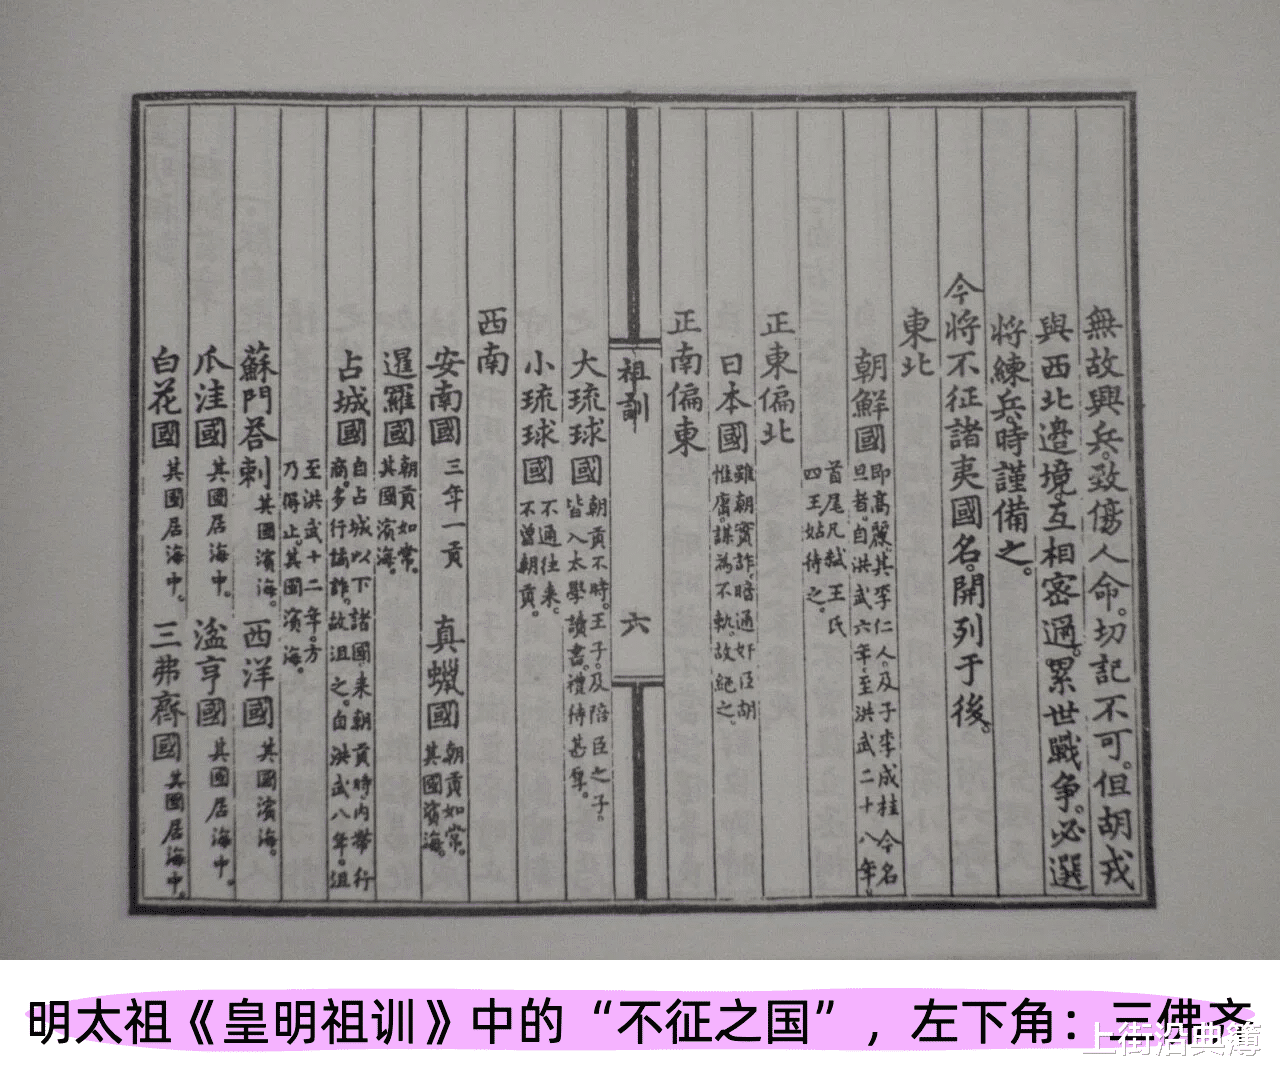 無故興兵。致傷人命。切記不可。但胡戎
與西北邊境。互相密邇。累世戰爭。必選
將練兵。時謹備之。
今將不征諸夷國名。開列于後。
東北
朝鮮國 即高麗。其李仁人。及子李成桂今名
旦者。自洪武六年。至洪武二十八年。
首尾凡弒王氏
四王。姑待之。
正東偏北
日本國 雖朝實詐。暗通奸臣胡
惟庸。謀為不軌。故絕之。
正南偏東
祖訓
六
大琉球國 朝貢不時。王子。及陪臣之子。
皆入太學讀書。禮待甚厚。
小琉球國 不通往來。
不曾朝貢。
西南
安南國 三年一貢 真蠟國 朝貢如常。
其國濱海。
暹羅國 朝貢如常。
其國濱海。
占城國 自占城以下諸國。来朝貢時。内帶行
商。多行譎詐。故沮之。自洪武八年。沮
至洪武十二年。方
乃得止。其國濱海。
蘇門荅剌 其國濱海。 西洋國 其國濱海。
爪洼國 其國居海中。 湓亨國 其國居海中。
白花國 其國居海中。 三弗齊國 其國居海中。
明太祖《皇明祖训》中的“不征之国”，左下角：三佛齐
上街沿典簿